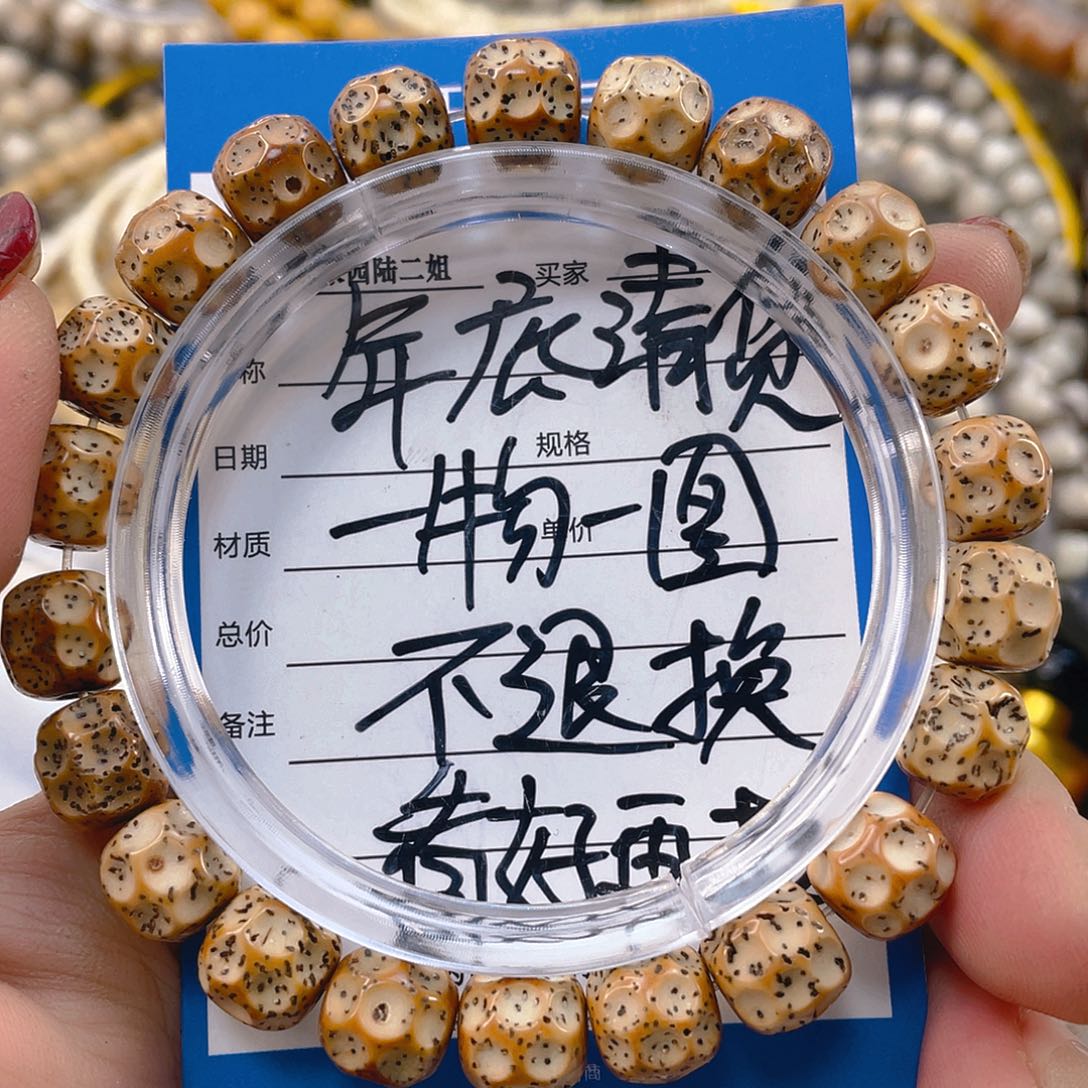 四陆二姐 买家
年底清货
称
日期 规格
一物一图
材质 单价
总价
不退换
备注
考好再